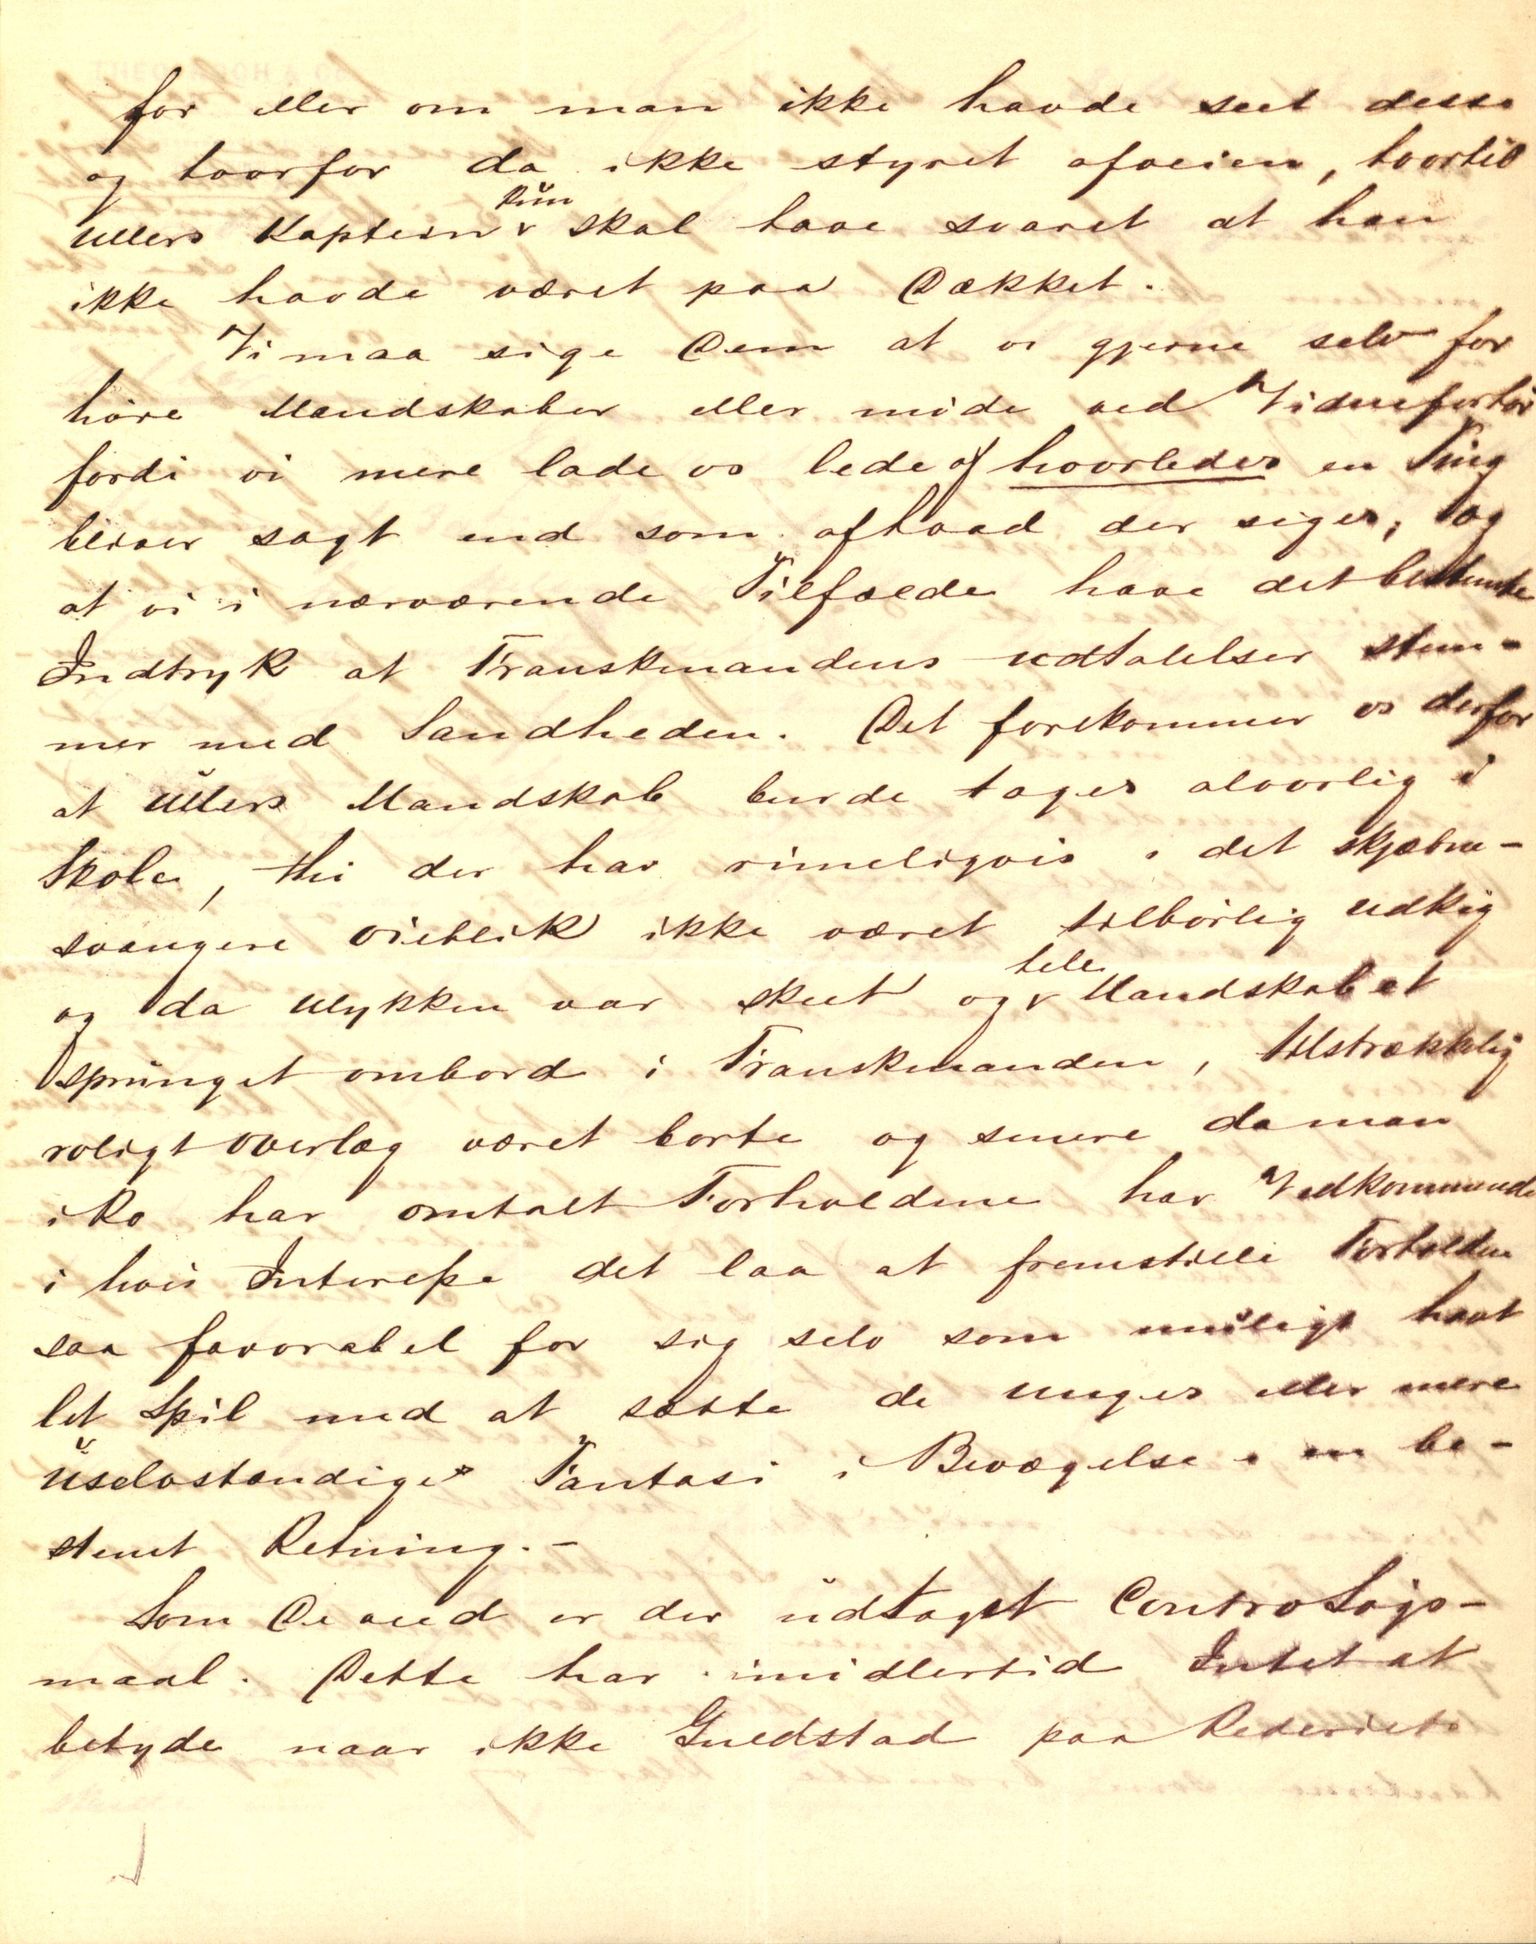 for eller om man ikke havde seet dessa
og hvorfor da ikke styret afveien, hvortil
Ullers Kaptein kun skal have svaret at han
ikke havde været paa Dækket.
Vi maa sige Dem at vi gjerne selv for
høre Mandskaber eller møde ved Vidneforhør
fordi vi mere lade os lede af hvorledes en Ting
bliver sagt end som afhvad der siges, og
at vi i nærværende Tilfælde have det bestemte
Indtryk at Franskmandens udtalelser stem-
mer med Sandheden. Det forekommer os derfor
at Ullers Mandskab burde tages alvorlig i
Skole, thi der har rimeligvis i det skjæbne-
svangere Øieblik ikke været tilbørlig udkig
og da Ulykken var skeet og hele Mandskabet
sprunget ombord i Franskmanden, tilstrækkelig
roligt overlæg været borte og senere da man
i Ro har omtalt Forholdene har Vedkommende
i hvis Interesse det laa at fremstille Forholdene
saa favorabel for sig selv som muligt havt
let Spil med at sætte de unges eller mere
uselvstændiges Fantasi i Bevægelse i en be-
stemt Retning.-
Som De ved er der udtaget Contra Søgs-
maal. Dette har imidlertid Intet at
betyde naar ikke Guldstad paa Rederiets